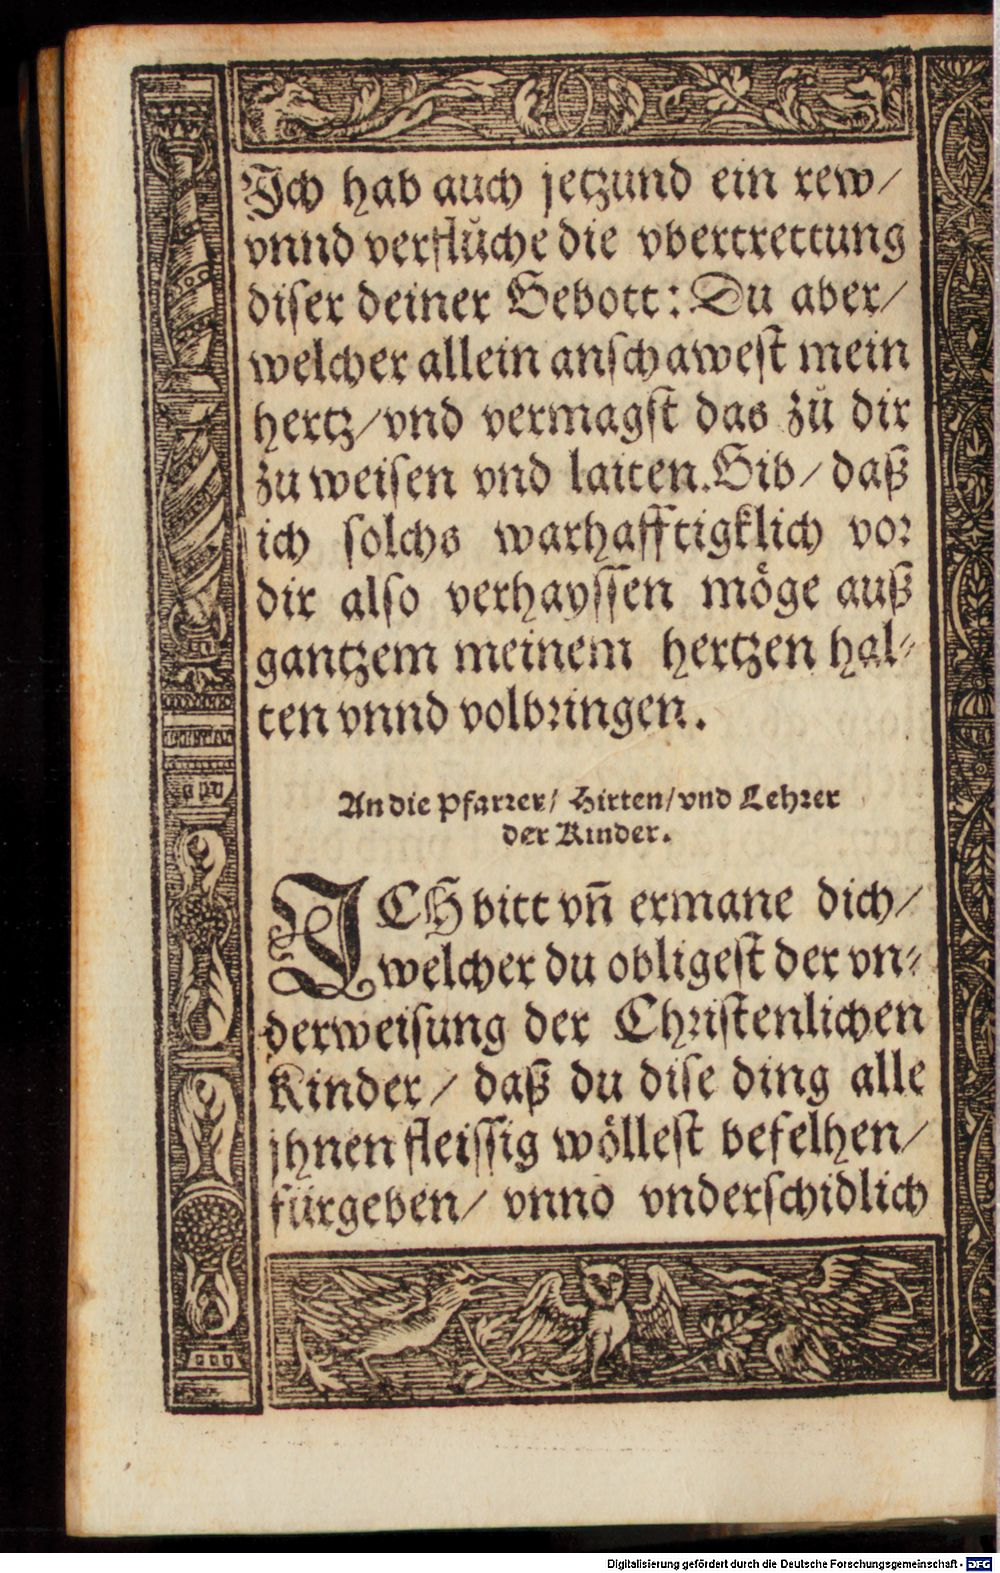 Ich hab auch jetzund ein rew/
vnnd verflůche die vbertrettung
diser deiner Gebott: Du aber/
welcher allein anschawest mein
hertz/vnd vermagst das zů dir
zu weisen vnd laiten. Gib/ daß
ich solchs warhafftigklich vor
dir also verhayssen möge auß
gantzem meinem hertzen hal⸗
ten vnnd volbringen.
An die Pfarrer/ Hirten/vnd Lehrer
der Kinder.
ICH bitt vn̄ ermane dich/
welcher du obligest der vn⸗
derweisung der Christenlichen
Kinder/ daß du dise ding alle
jhnen fleissig wöllest befelhen/
fürgeben/ vnnd vnderschidlich
Digitalisierung gefördert durch die Deutsche Forschungsgemeinschaft - DFG